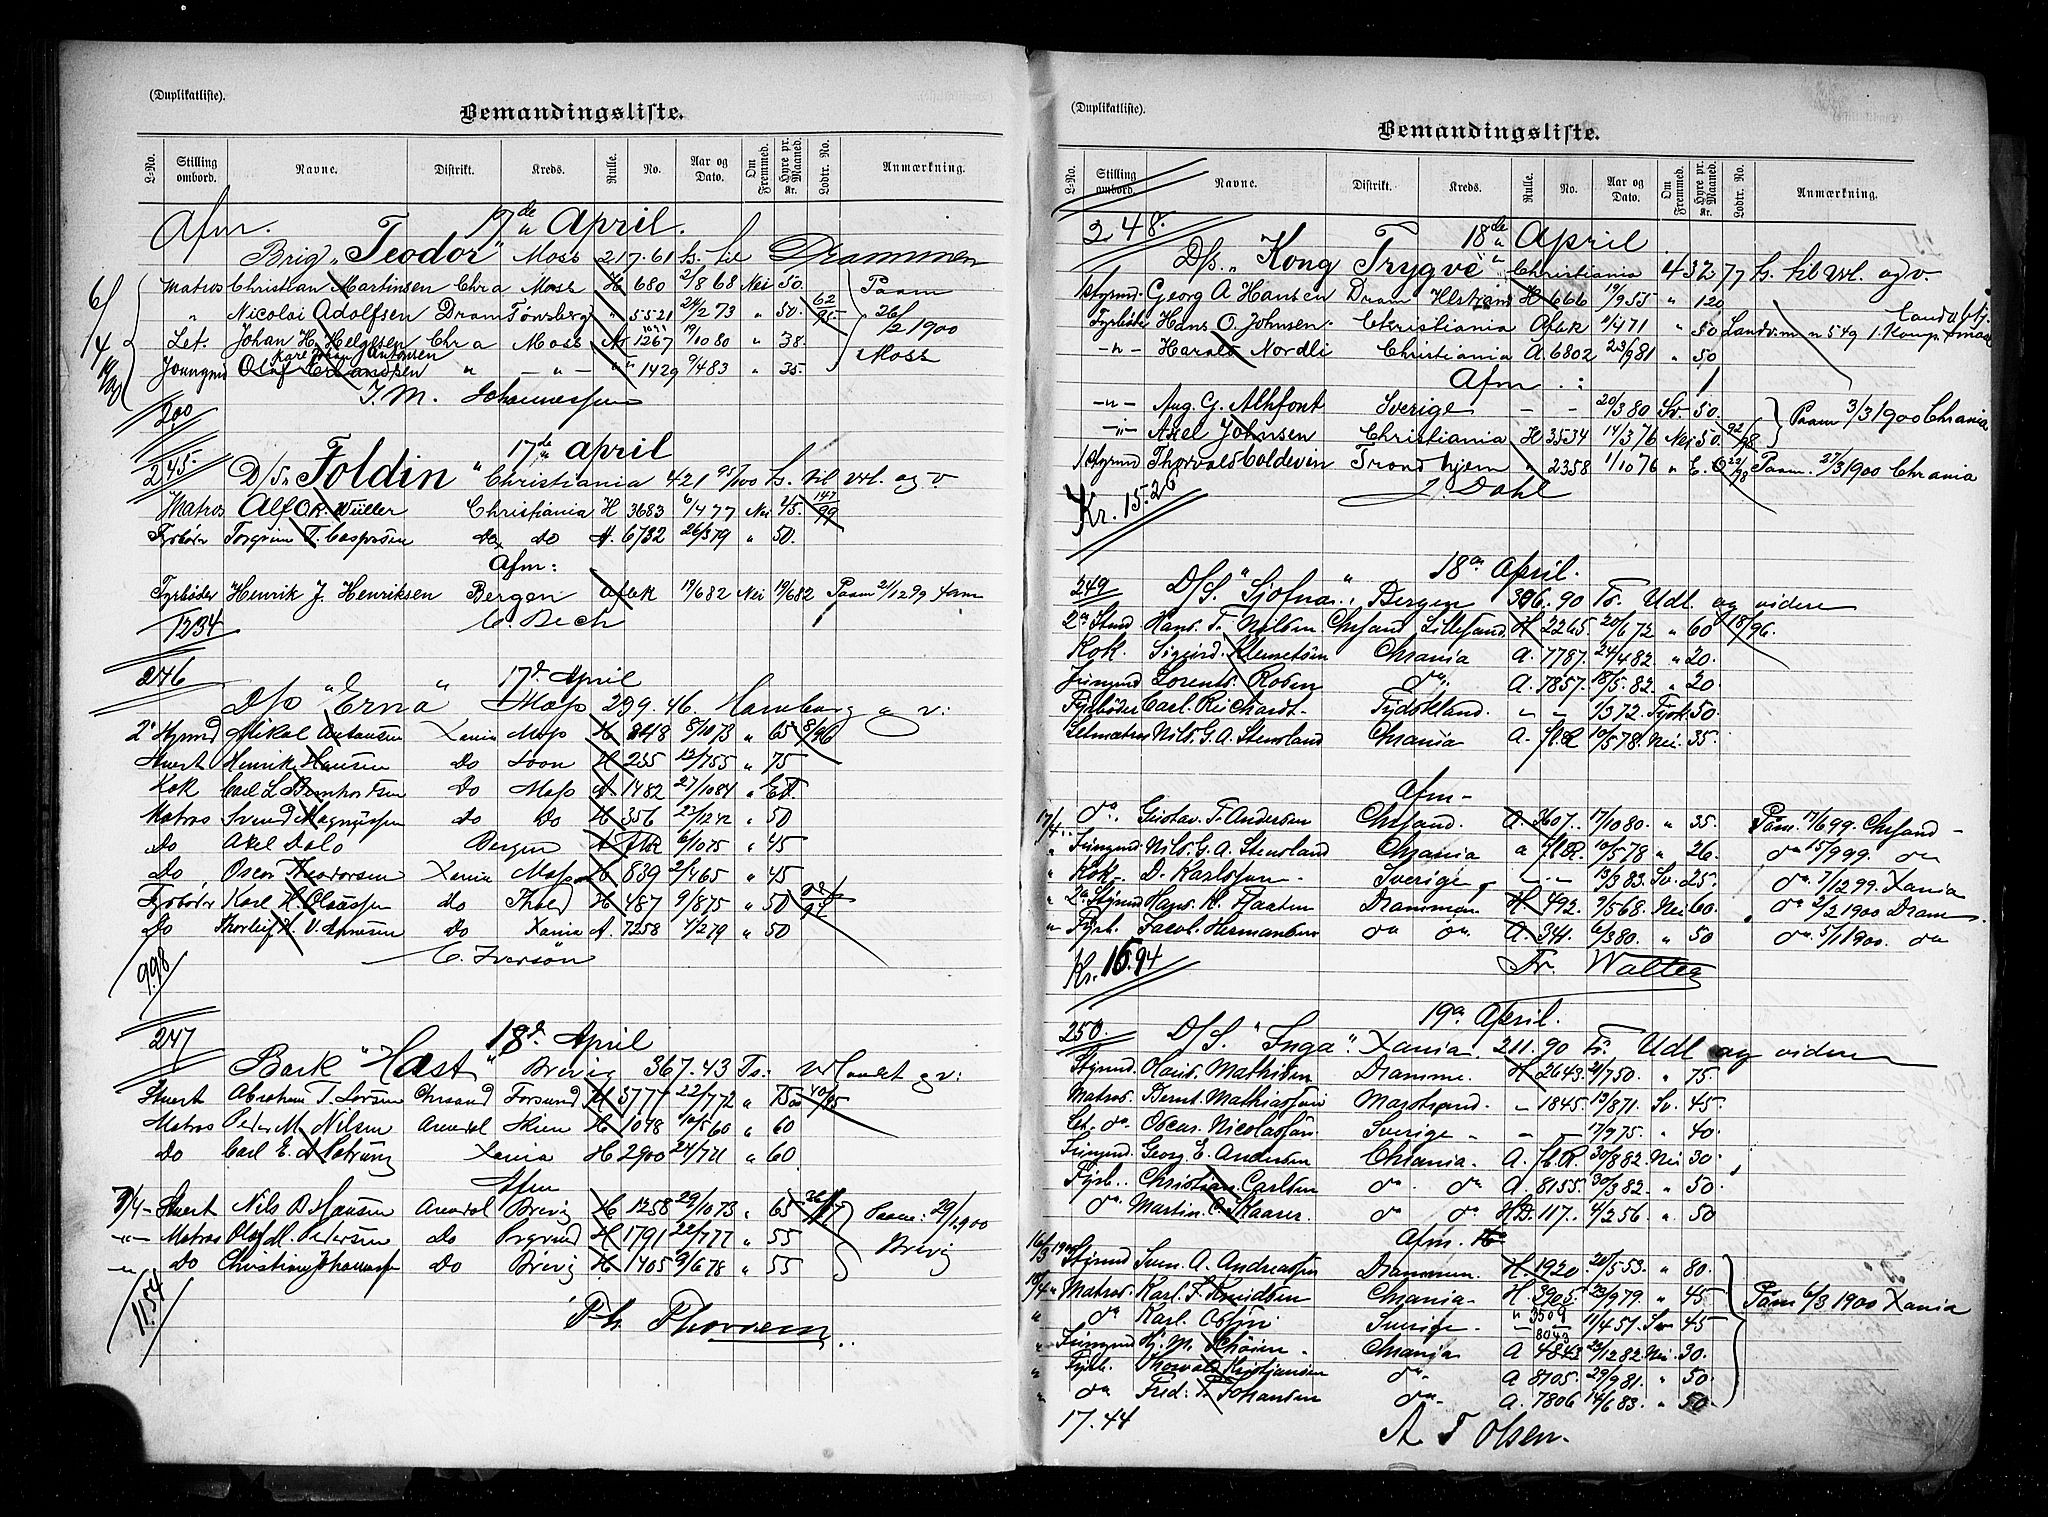 (Duplikatliste).
Bemandingsliste.
L-No. Stilling ombord. Navne. Distrikt. Kreds. Rulle. No. Aar og Dato. Om Fremmed. Hyre pr. Maaned. Kr. Lodtr. No. Anmærkning.
Afm. 17de April.
Brig "Teodor" Moss 217.61 ts. til Drammen
Matros Christian Martinsen Chra Moss H 680 2/8 68 Nei 50.
" Nicolai Adolfsen Dram Tønsberg " 5521 24/2 73 " 50. 62/95 Paam 26/2 1900 Moss
Let. Johan H. Helgesen Chra Moss 1267 19/10 80 " 38.
Karl Johan Antonsen
Joungmd Olaf Erlandsen " — " — " 1429 9/4 83 " 35.
J. M. Johannessen
200
245. 17de April
D/S. "Foldin" Christiania 421 95/100 ts. til vrl. og v.
Matros Alf O. K. Müller Christiania H 3683 6/4 77 Nei 45. 147/99
Fyrbøder Torgrim T. Caspersen do do A. 6732 26/3 79 " 50.
Afm:
Fyrbøder Henrik J. Henriksen Bergen Afsk 19/6 82 Nei 19/6 82 Paam 21/12 99 Sam
1234 C. Bech
246 17d April
D/S "Erna" Moss 299.46. Hamburg og v:
2' Styrmd Mikal Antonsen Xania Moss H 348 8/10 73 " 65 8/96
Stuert Henrik Hansen Do Soon H 255 12/7 55 " 75
Kok Carl L Bernhardsen Do Moss A. 1482 27/10 84 "
Matros Svend Magnussen do Do H 356 27/12 42 " 50
Do Axel Dalo Bergen A 6/10 75 " 45
Do Oscar Theodorsen Xania Moss H 839 2/4 65 " 45
Fyrbøder Karl H. Olaussen do H 487 9/8 75 " 50
Do Thorleif H. V. Arnesen Do Xania A. 7258 4/2 79 " 50
C. Iversøn
998
247 18d April
Bark "Høst" Brevig 367.43 Ts: og v:
Stuert Abraham T. Larsen Chrsand Farsund H 3777 22/7 72 " 75 40/95
Matros Peder M. Nilsen Arendal Skien H 1098 10/5 60 " 60
Do Carl E. Xania H 2900 24/7 21 " 60
Afm
7/4 - Stuert Nils B Hansen Arendal Brevig H 1258 29/10 73 " 65 Paam: 29/1 1900 Brevig
— " — Matros Olaf M. Pedersen Do Prgrund H 1791 22/7 77 " 55
— " Do Christian Johannessen Do Brevig H 1405 9/6 78 " 55
1154 Th. Thorsen
(Duplikatliste).
Bemandingsliste.
L-No. Stilling ombord. Navne. Distrikt. Kreds. Rulle. No. Aar og Dato. Om Fremmed. Hyre pr. Maaned. Kr. Lodtr. No. Anmærkning.
248. 18de April
D/s. "Kong Trygve" Christiania 432 77 ts. til vrl. og v.
1 Styrmd. Georg A Hansen Dram H 666 19/9 55 " 120
Fyrbøder Hans O. Johnsen. Christiania Afsk 1/4 71 " 50 Landv. m n 549 1. Komp.
— " — Harald Nordli Christiania A. 6802 23/9 81 " 50
Afm. :
— " — Aug. G. Sverige — — 20/3 80 Sv 50.
— " — Axel Johnsen Christiania H 3534 14/3 76 Nei 50. 92/98 Paam 3/3 1900 Chrania
1 Styrmd Thorvald Coldevin Trondhjem " 2358 1/10 76 " E. O. Paam. 27/3 1900 Chrania
Kr. 15.26 J. Dahl
249 18de April.
D/S. "Sjofna." Bergen 306.90 Ts. Udl. og videre
2de Stmd. Hans T. Nilsen. Chrsand Lillesand. H 2265. 20/6 72 " 60 18/96.
Kok. Sigurd. Klemetsen Chrania A. 7787. 24/4 82. " 20.
Jungmd Lorents Rosen do. A. 7857. 18/5. 82. " 20
Fyrbøder Carl Reichardt. Tydskland. — — 1/3 72 Tysk 50.
Letmatros Nils G. A. Stensland Chrania A. 10/5 78. Nei. 35.
Afm —
17/4 do. Gustav. T. Andersen Chrsand. A. 3607. 17/10 80. " 35. Paam. 17/6 99. Chrsand —
" Jungmd Nils. G. A. Stensland Chrania a 10/5 78 " 26. do 15/9 99. do
" Kok. D. Karlsson. Sverige. — — 13/3 83. Sv. 25. do 7/12 99. Xania
" 2de Styrmd Hans. K. Flaaten Drammen H. 492. 9/5 68. Nei 60. do 2/2 1900 Dram
" Fyrb. Jacob. Hermansen do do. A. 341. 6/3 80. " 50 do. 5/1 1900. do
Kr. 15.94 Fr. Walter
250. 19de April.
D/S. "Inga". Xania. 211.90 Ts. Udl og videre
Styrmd. Hans. Mathisen Dramme. H 2643. 21/7 50. " 75.
Matros. Bernt. Mathiassen Marstrand. — 1845. 13/8 71. Sv. 45.
Let. do. Oscar. Nicolaisen. Sverige — — 17/9 75. " 40.
Jungmd. Georg E. Andersen Chrania. A. 30/8 82. Nei 30.
Fyrb.. Christian Carlsen do. do A 8155. 30/3 82. " 50.
do. Martin. C. Skaarer. do do HD. 117. 4/2 56. " 50
Afm.
16/3 1900 Styrmd. Sven. A. Andreassen Drammen. H. 1920. 20/5 53. " 80.
18/4 " Matros. Karl. F. Knudsen Chrania. H. 3905. 23/9 79. " 45 Paam 6/3 1900 Xania
" do Karl. Sverige. " 3509 11/4 57. Sv 45
" Jungmd Hj. M. Schøien. Chrania A 8043 4843 22/12 82. Nei. 30.
" Fyrb. Thorvald Kristjansen do. A 8705. 29/9 81. " 50.
" do Fred. T. Johansen do. A. 7806 14/6 83. " 50.
17.44 A T Olsen.